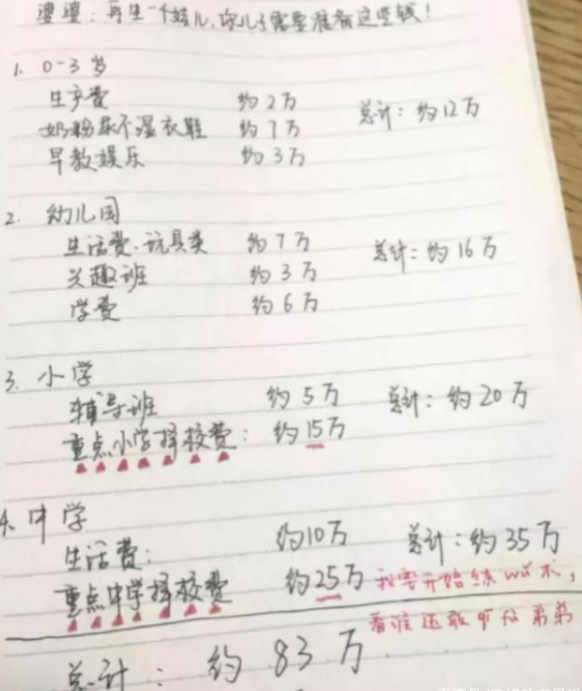 婆婆：再生一个娃儿,你儿子需要准备这些钱！
1. 0-3岁
生产费 约2万 总计：约12万
奶粉尿不湿衣鞋 约7万
早教娱乐 约3万
2. 幼儿园
生活费.玩具类 约7万 总计：约16万
兴趣班 约3万
学费 约6万
3. 小学
辅导班 约5万 总计：约20万
重点小学择校费： 约15万
4. 中学
生活费： 约10万 总计：约35万
重点中学择校费 约25万 我要开始练wǔ术，
看谁还敢 弟弟
总计：约83万